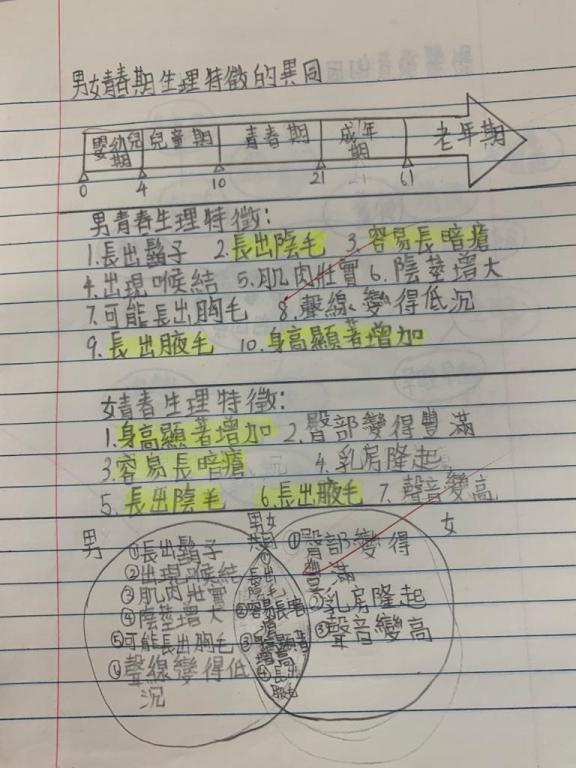 男女青春期生理特徵的異同
嬰幼兒期 兒童期 青春期 成年期 老年期
0 4 10 21 61
男青春生理特徵:
1.長出鬍子 2.長出陰毛 3.容易長暗瘡
4.出現喉結 5.肌肉壯實 6.陰莖增大
7.可能長出胸毛 8.聲線變得低沉
9.長出腋毛 10.身高顯著增加
女青春生理特徵:
1.身高顯著增加 2.臀部變得豐滿
3.容易長暗瘡 4.乳房隆起
5.長出陰毛 6.長出腋毛 7.聲音變高
男
①長出鬍子
②出現喉結
③肌肉壯實
④陰莖增大
⑤可能長出胸毛
⑥聲線變得低
沉
男女
共同
①長出
陰毛
②容易長暗
瘡
③身高顯著
增高
④長出
腋毛
女
①臀部變得
豐滿
②乳房隆起
③聲音變高